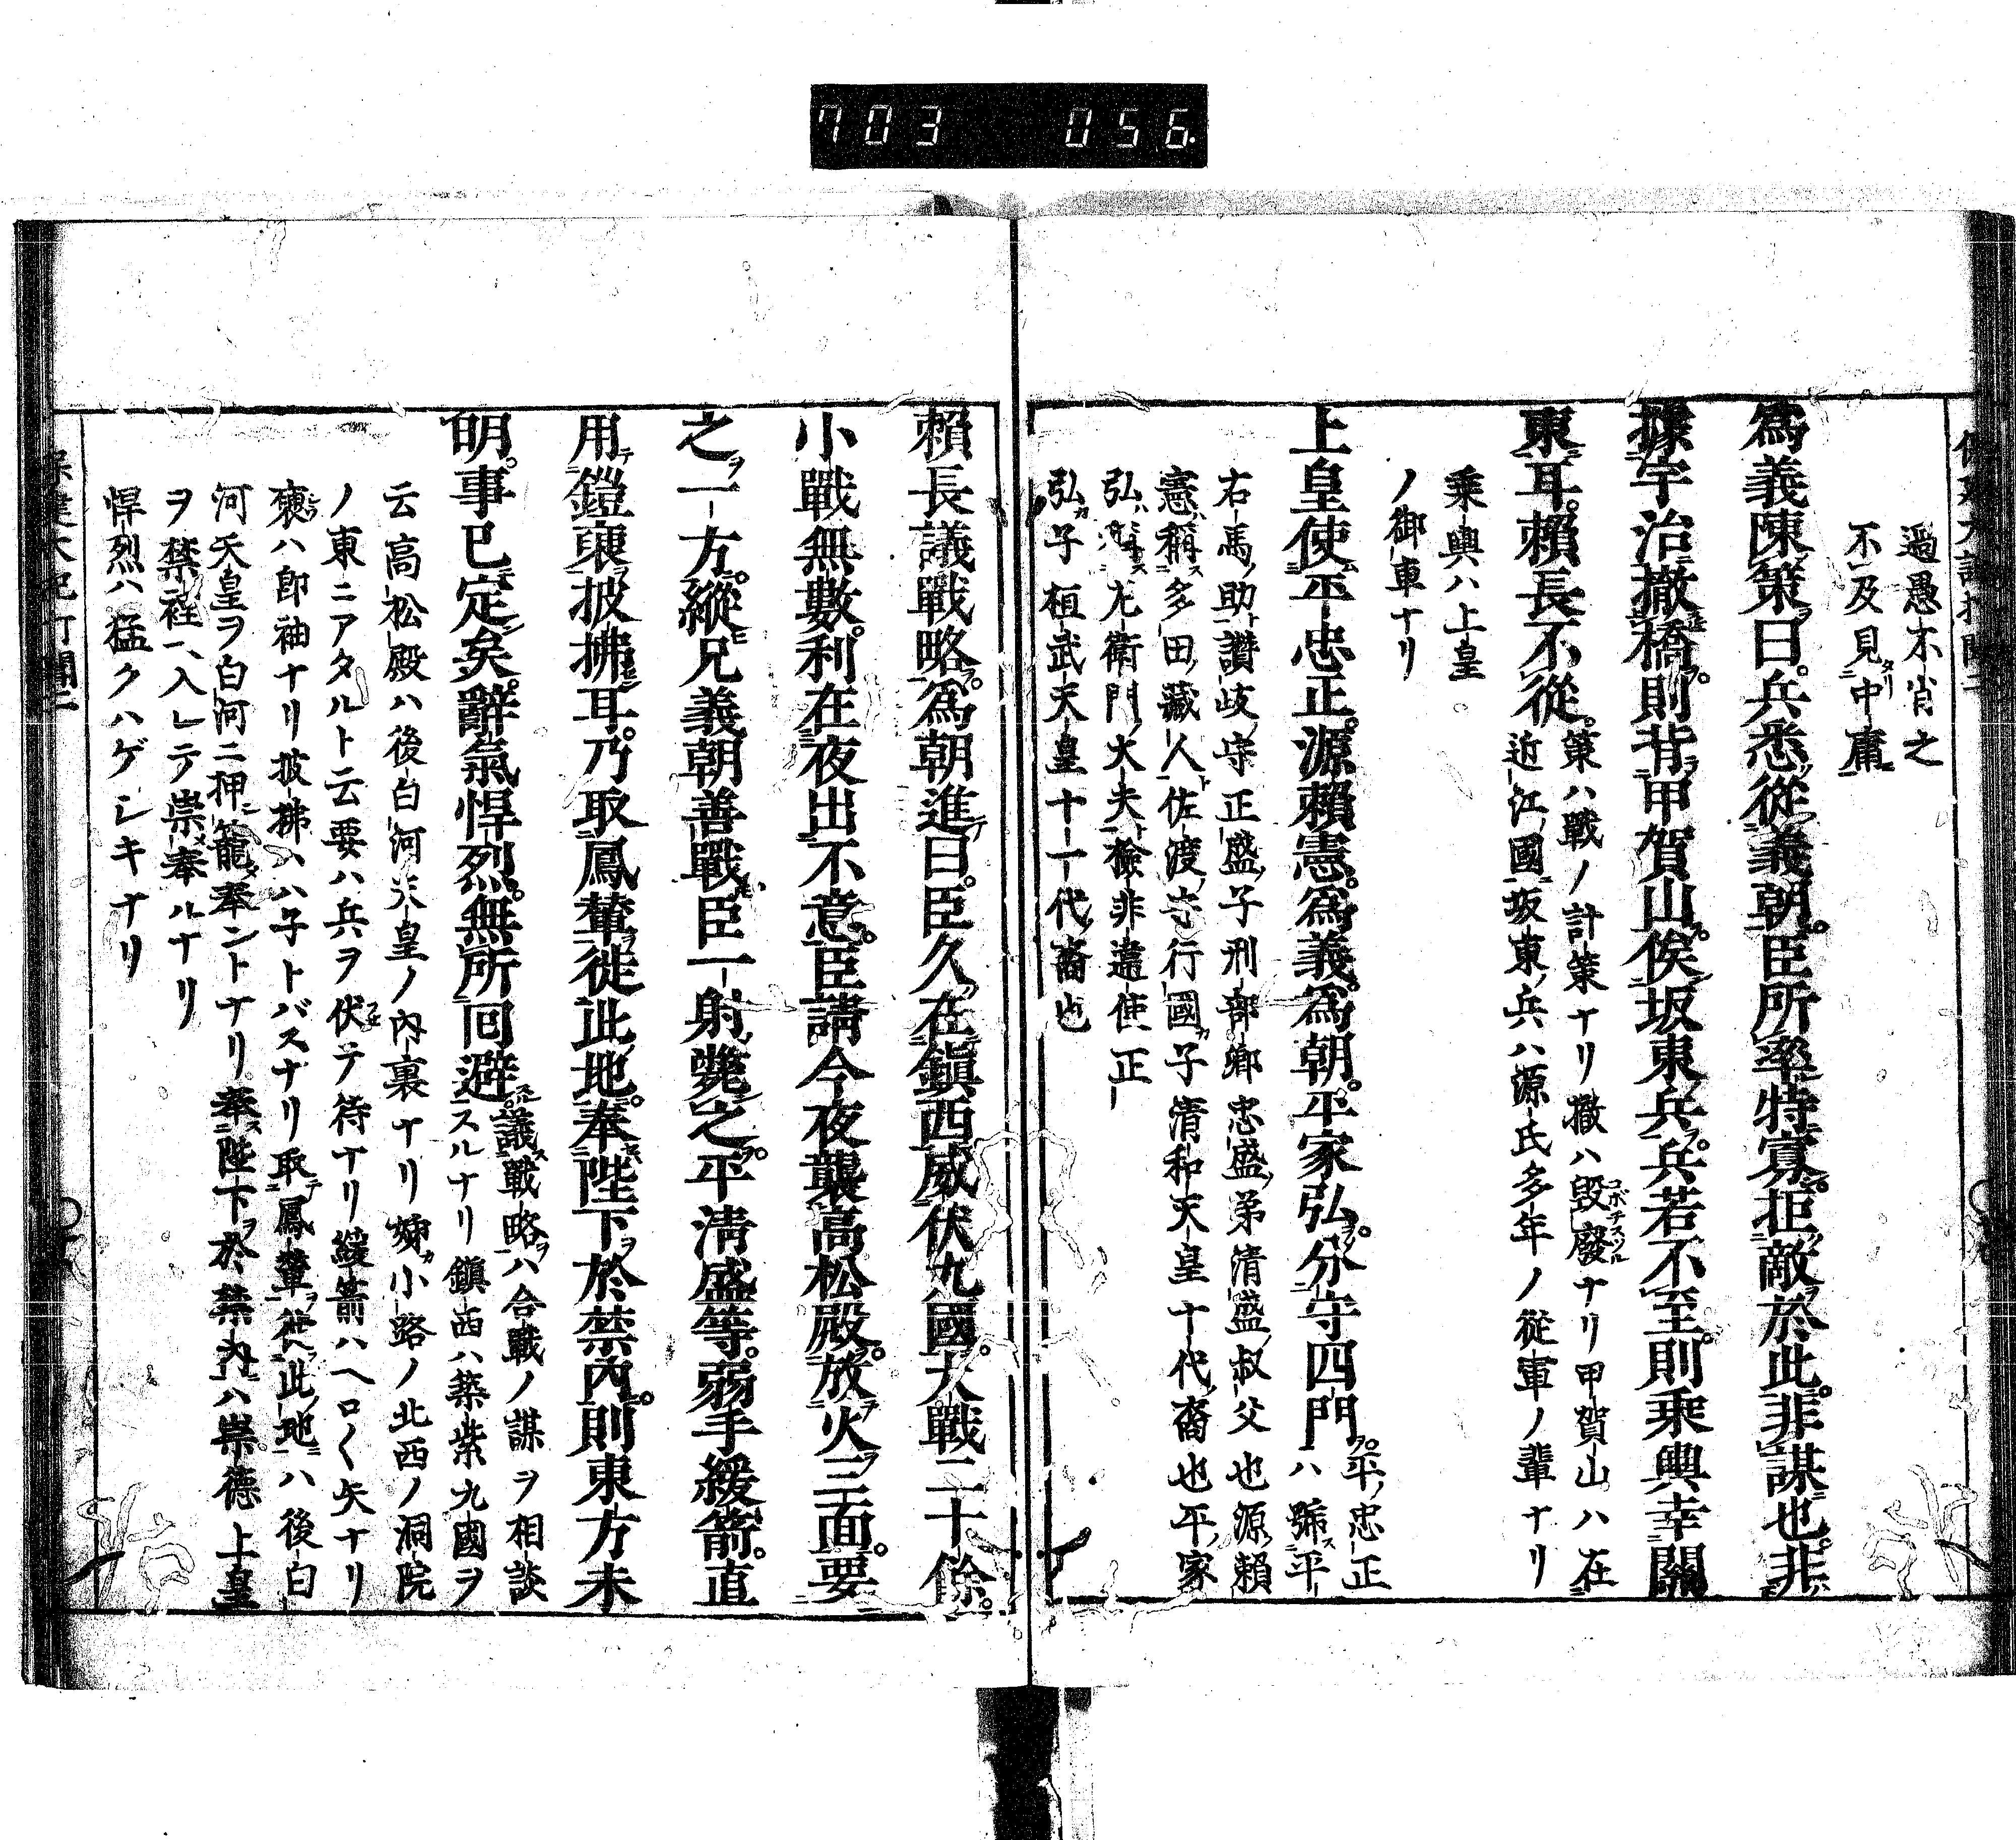 703 056
過愚不肖之
不及見中庸
爲義陳策曰兵悉從義朝臣所率特寡拒敵於此非謀也非
據宇治撤橋則背甲賀山俟坂東兵兵若不至則乘輿幸關
東耳賴長不從
策ハ戰ノ計策ナリ撤ハ毀廢ナリ甲賀山ハ在
近江國坂東兵ハ源氏多年ノ從軍ノ輩ナリ
乘輿ハ上皇
ノ御車ナリ
上皇使平忠正源賴憲爲義爲朝平家弘分守四門
平忠正
ハ號平
右馬助讚岐守正盛子刑部卿忠盛弟清盛叔父也源賴
憲稱多田藏人佐渡守行國子清和天皇十代裔也平家
弘稱左衛門大夫檢非違使正
弘子桓武天皇十一代裔也
賴長議戰略爲朝進曰臣久在鎭西威伏九國大戰二十餘
小戰無數利在夜出不意臣請今夜襲高松殿放火三面要
之一方縱兄義朝善戰臣一射斃之平淸盛等弱手緩箭直
用鎧褎披拂耳乃取鳳輦徙此地奉陛下於禁內則東方未
明事已定矣辭氣悍烈無所囘避
議戰略ハ合戰ノ謀ヲ相談
スルナリ鎭西ハ築紫九國ヲ
云高松殿ハ後白河天皇ノ內裏ナリ姉小路ノ北西ノ洞院
ノ東ニアタルト云要ハ兵ヲ伏テ待ナリ緩箭ハヘロ〱矢ナリ
褎ハ卽袖ナリ披拂ハハ子トバスナリ取鳳輦徙此地ハ後白
河天皇ヲ白河ニ押籠奉ントナリ奉陛下於禁內ハ崇德上皇
ヲ禁裡ヘ入レテ崇奉ルナリ
悍烈ハ猛クハゲシキナリ